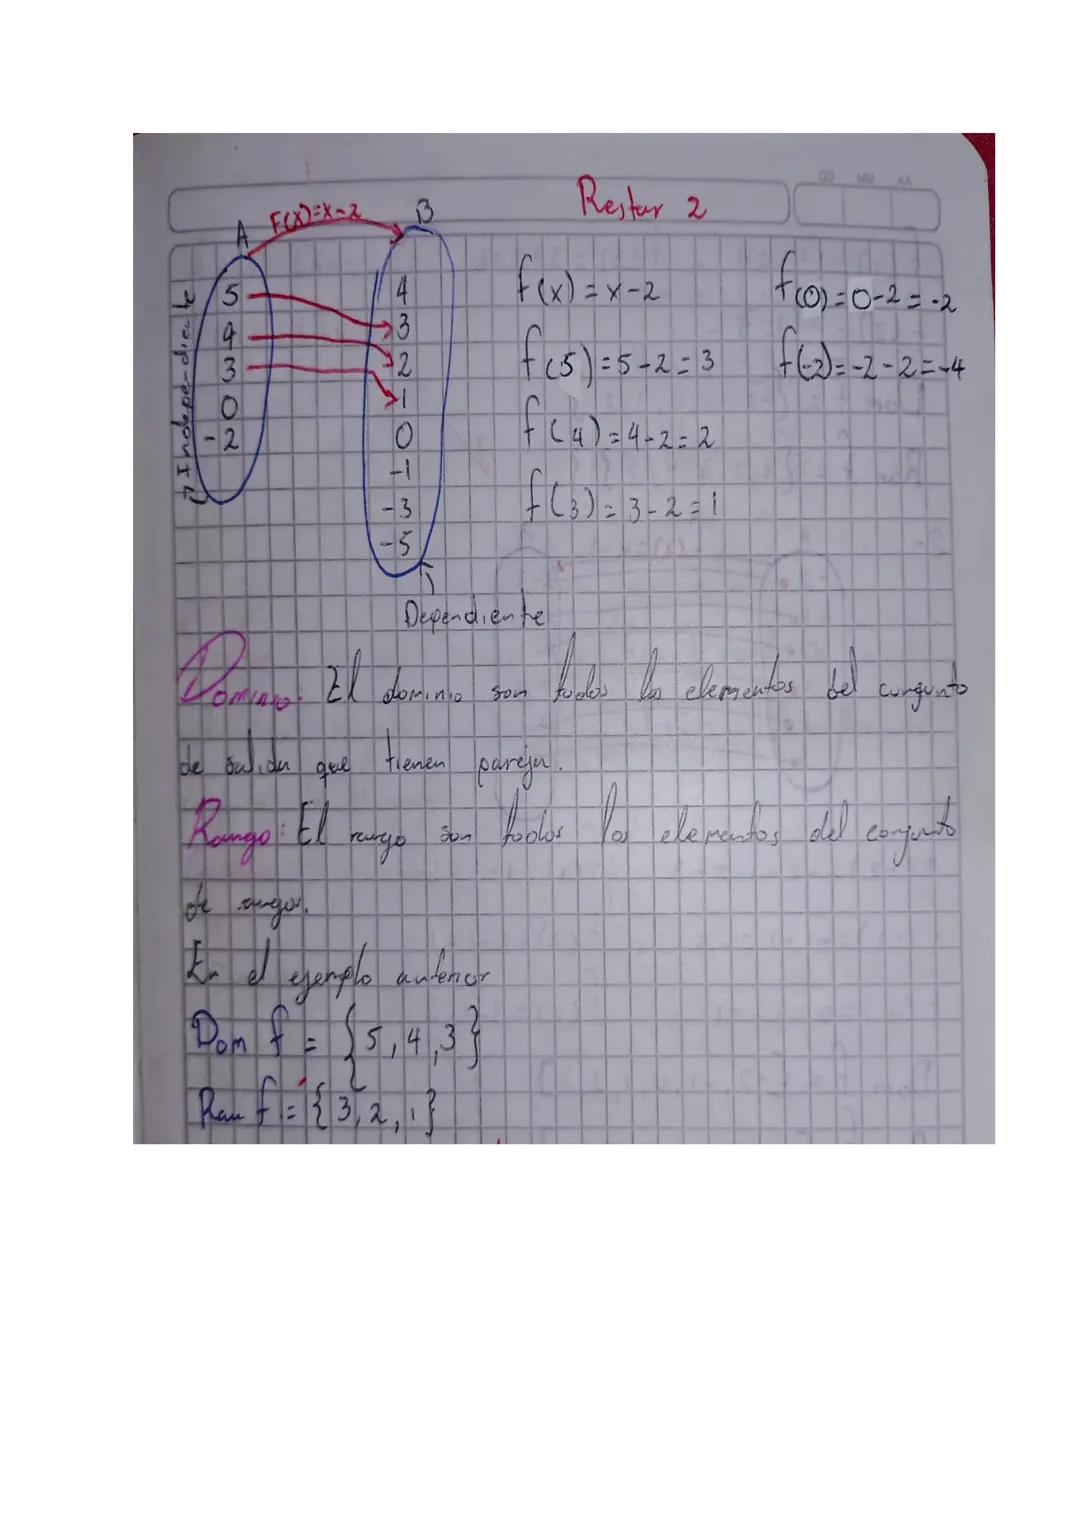 Restar 2
A F(x)=x-2 B
Independiente
5
4
3
0
-2
4
3
2
1
0
-1
-3
-5
Dependiente
f(x)=x-2
f(5)=5-2=3
f(4)=4-2=2
f(3)=3-2=1
f(0)=0-2=-2
f(-2)=-2-2=-4
Dominio: El dominio son todos los elementos del conjunto
de salida que tienen pareja.
Rango: El rango son todos los elementos del conjunto
de
En el ejemplo anterior
Dom f = {5,4,3}
Ran f = {3,2,1}